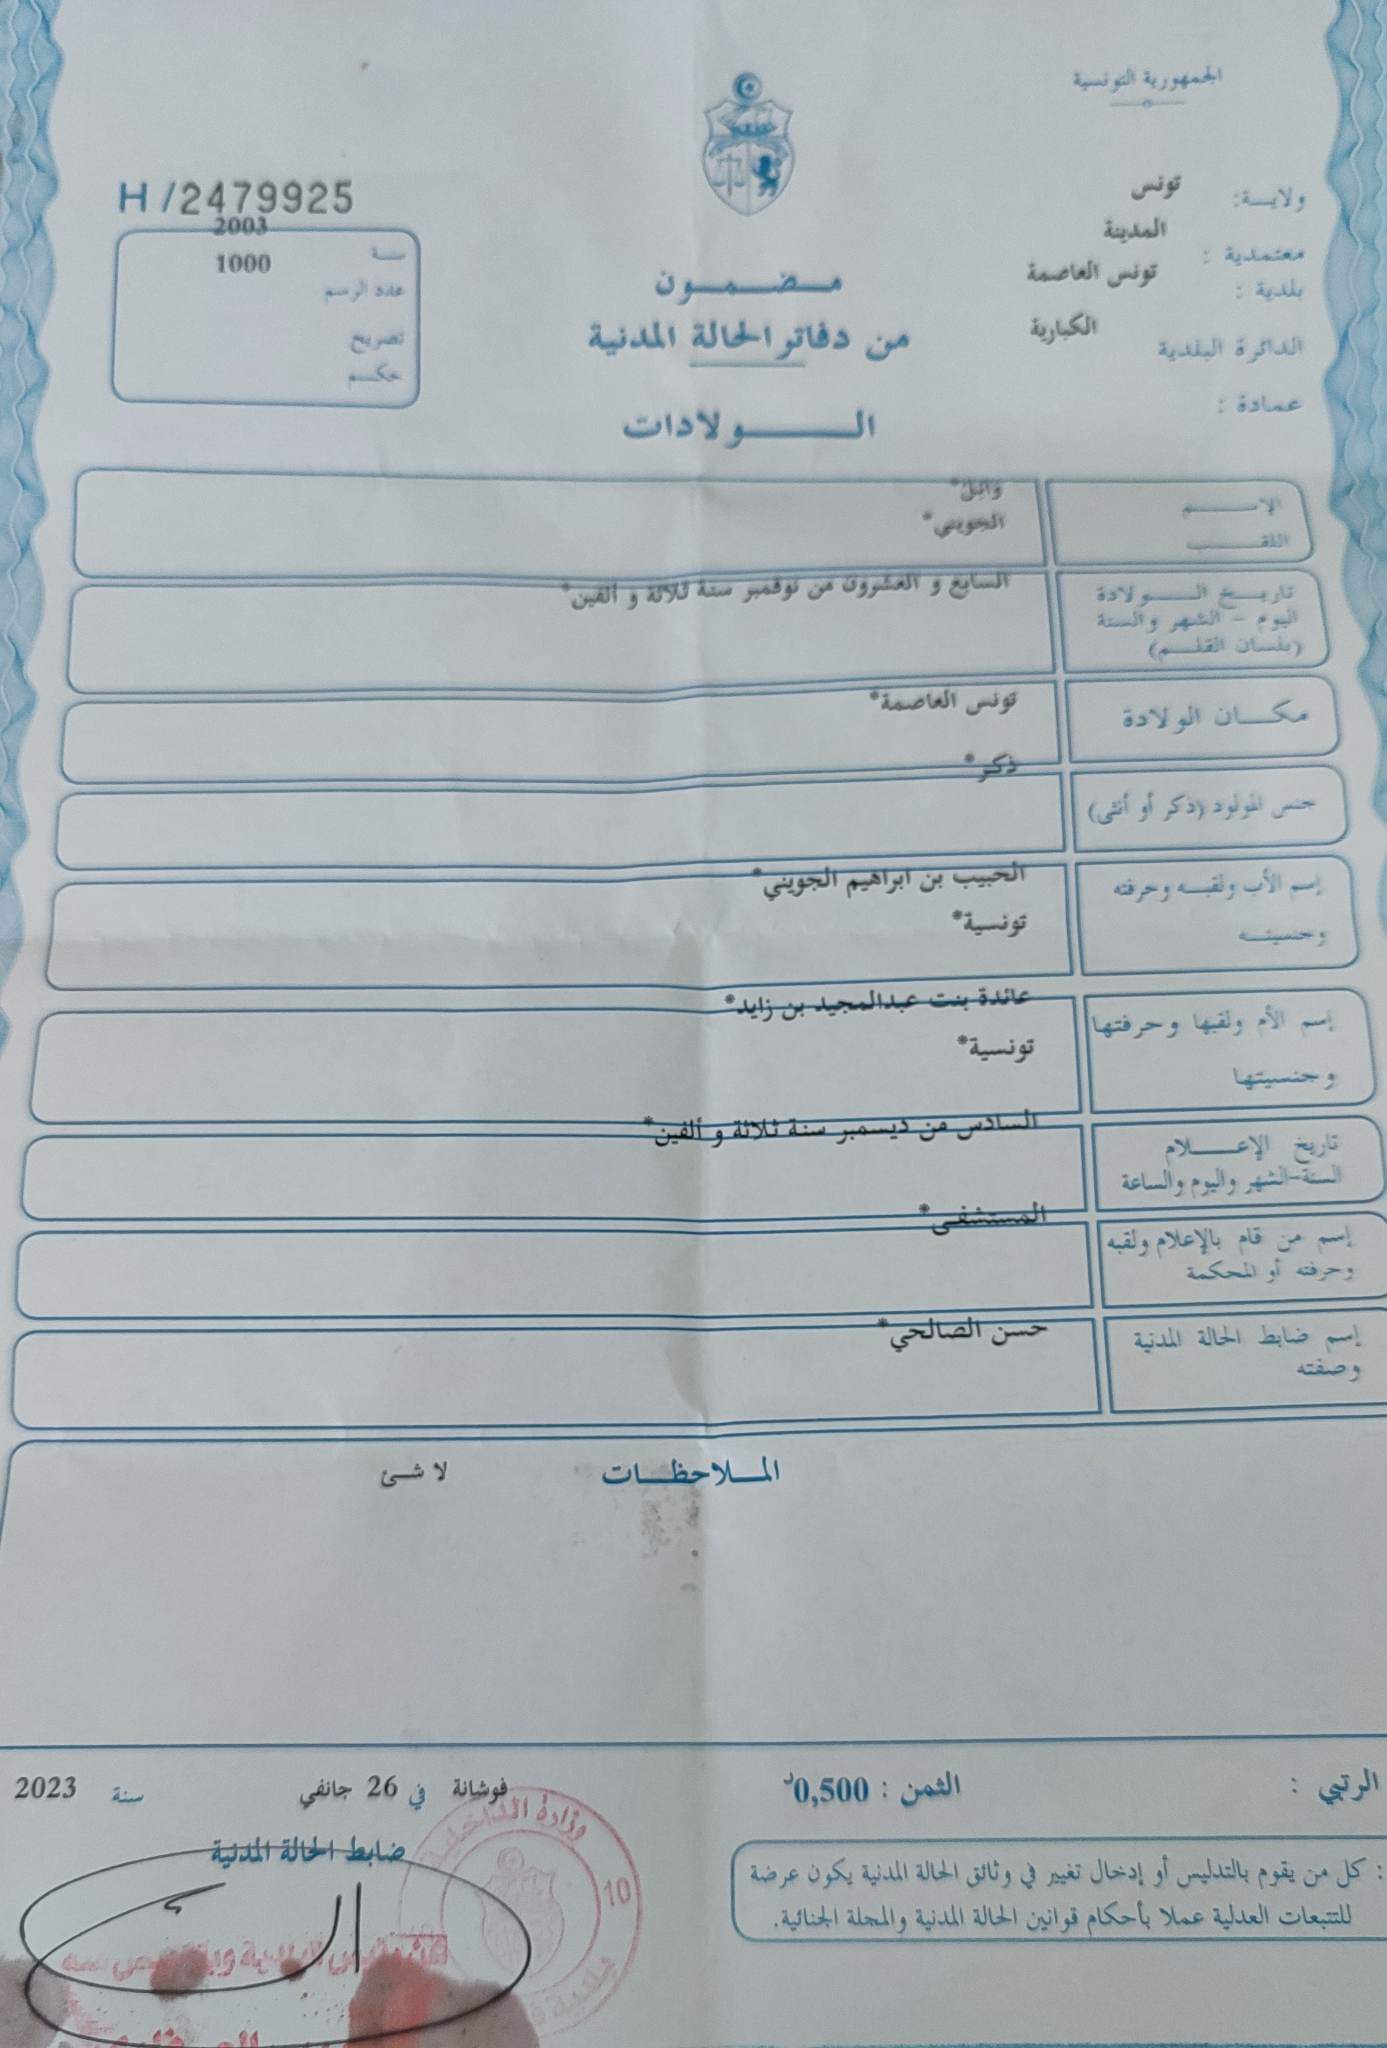 الجمهورية التونسية
ولاية: تونس
معتمدية : المدينة
بلدية : تونس العاصمة
الدائرة البلدية الكبارية
عمادة :
H/2479925
سنة 2003
عدد الرسم 1000
تصريح
حكم
مضمون
من دفاتر الحالة المدنية
الولادات
الإسم وائل*
اللقب الجويني*
تاريخ الولادة السابع و العشرون من نوفمبر سنة ثلاثة و ألفين*
اليوم - الشهر والسنة
(بلسان القلم)
مكان الولادة تونس العاصمة*
جنس المولود (ذكر أو أنثى) ذكر*
إسم الأب ولقبه وحرفته الحبيب بن ابراهيم الجويني*
وجنسيته تونسية*
إسم الأم ولقبها وحرفتها عائدة بنت عبدالمجيد بن زايد*
وجنسيتها تونسية*
تاريخ الإعلام السادس من ديسمبر سنة ثلاثة و ألفين*
السنة-الشهر واليوم والساعة
إسم من قام بالإعلام ولقبه المستشفى*
وحرفته أو المحكمة
إسم ضابط الحالة المدنية حسن الصالحي*
وصفته
الملاحظات لا شئ
الرتبي :
الثمن : 0,500د
فوشانة في 26 جانفي سنة 2023
ضابط الحالة المدنية
وزارة الداخلية
10
بلدية
: كل من يقوم بالتدليس أو إدخال تغيير في وثائق الحالة المدنية يكون عرضة
للتتبعات العدلية عملا بأحكام قوانين الحالة المدنية والمجلة الجنائية.